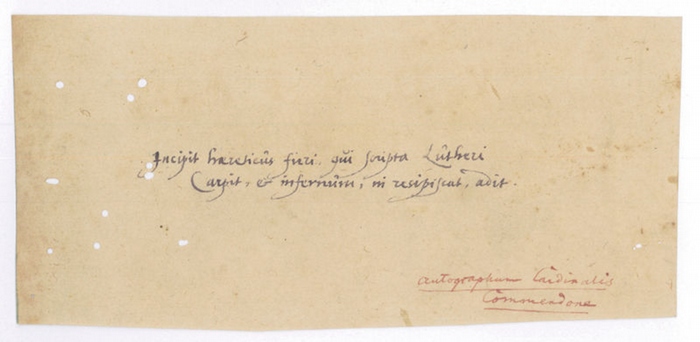 Incipit hæreticûs fieri, qûi scripta Lûtheri
Carpit, & infernûm, ni resipiscat, adit.
autographum Cardinalis
Commendone